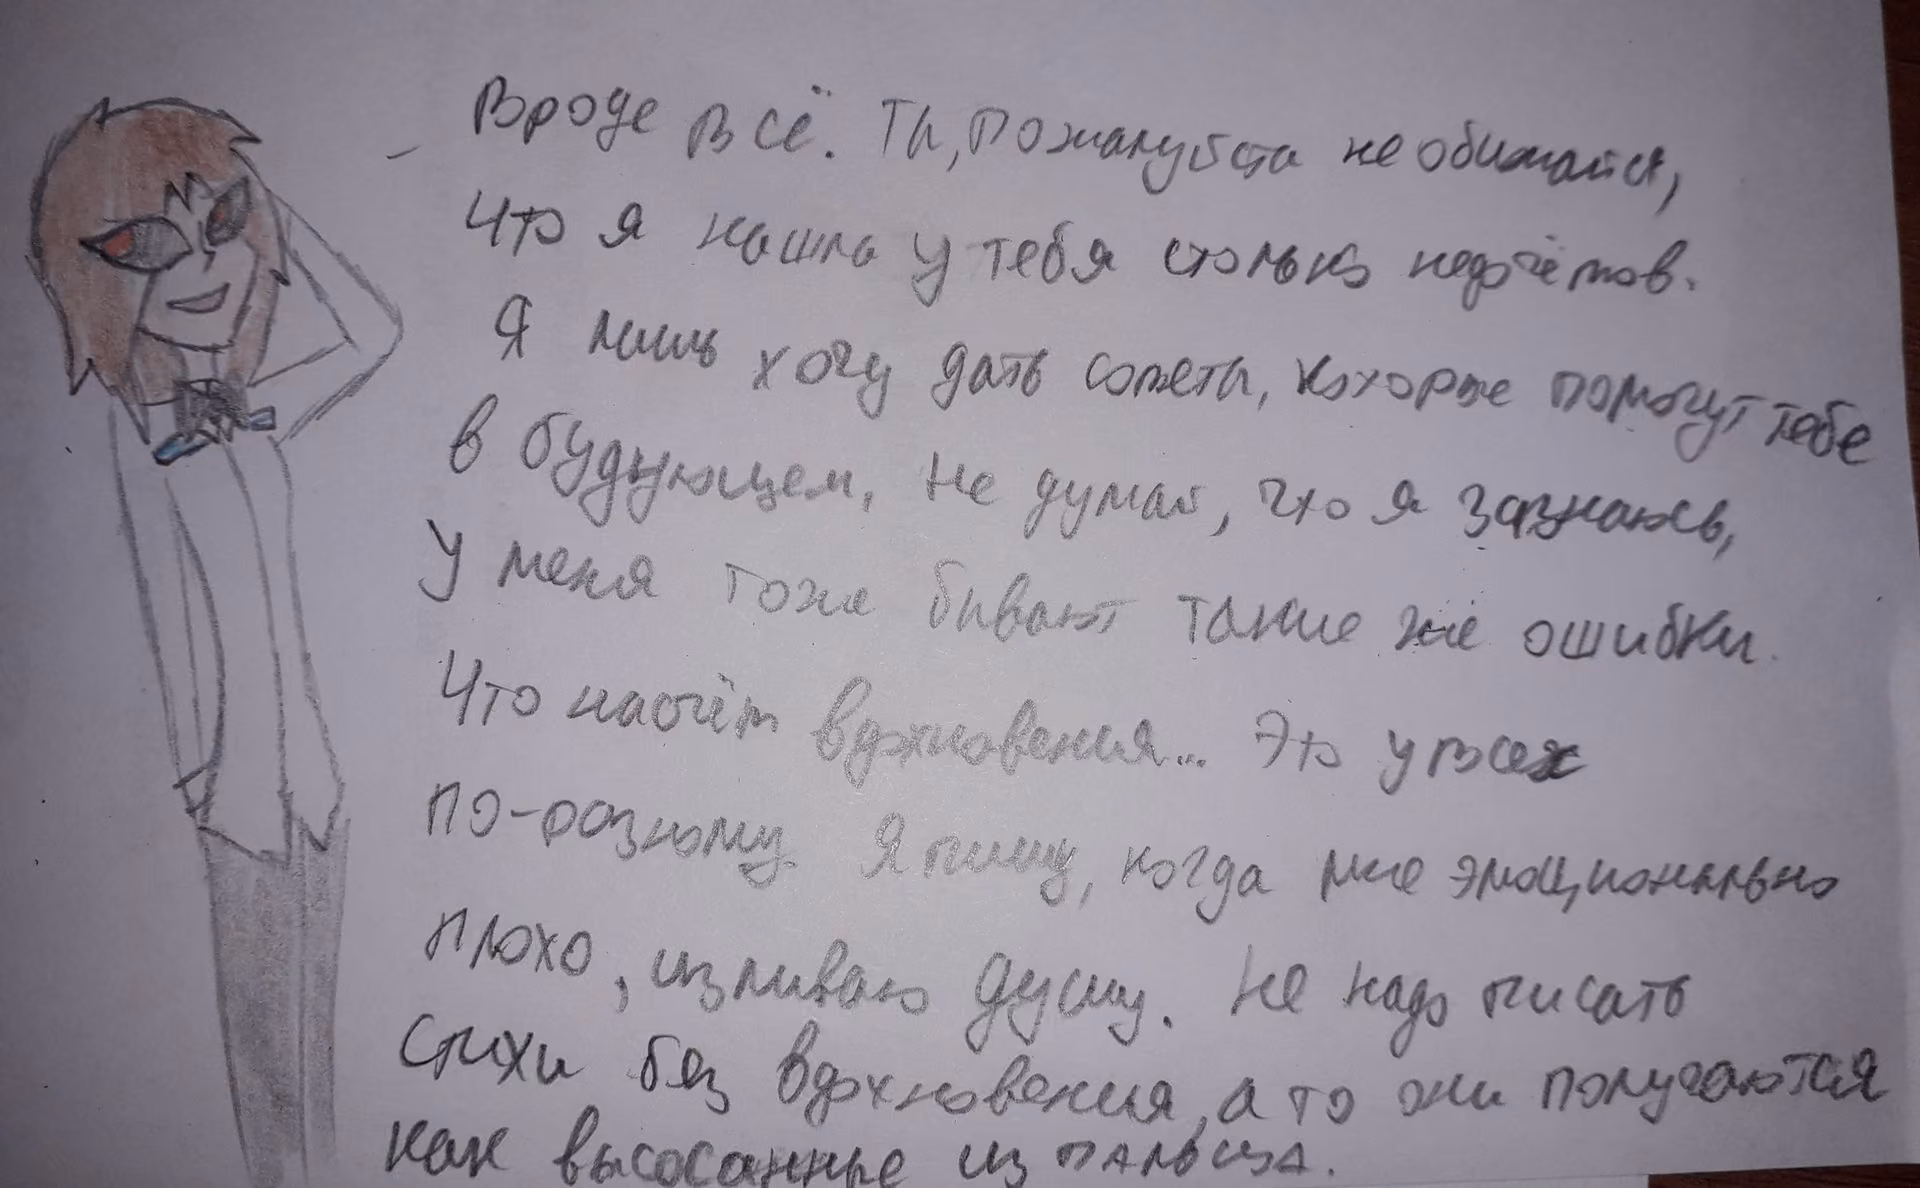 Вроде всё. Ты, пожалуйста не обижайся,
что я нашла у тебя столько недочётов.
Я лишь хочу дать советы, которые помогут тебе
в будующем, не думай, что я зазнаюсь,
у меня тоже бывают такие же ошибки.
Что насчёт вдохновения... Это у всех
по-разному. Я пишу, когда мне эмоционально
плохо, изливаю душу. Не надо писать
стихи без вдохновения, а то они получаются
как высосанные из пальца.